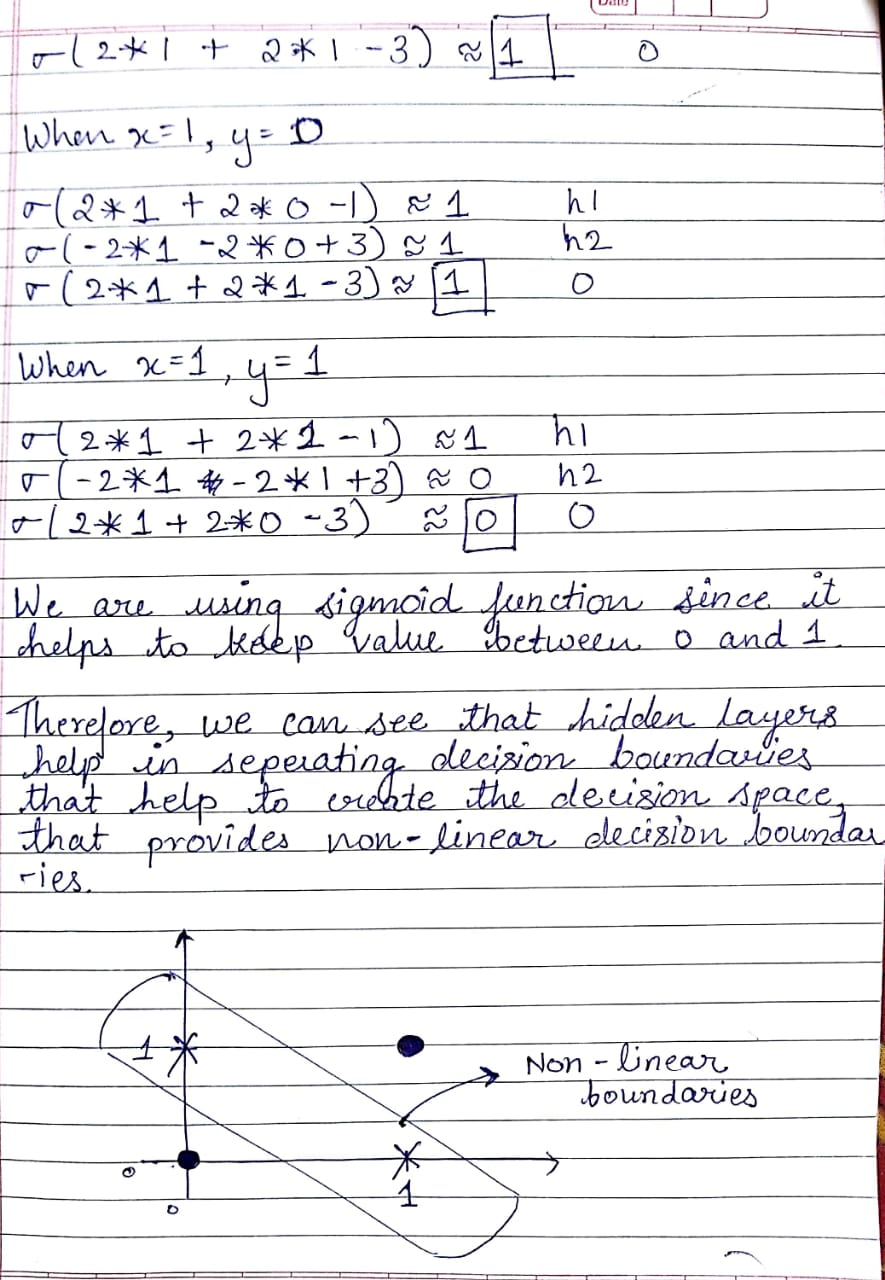 Date
σ(2*1 + 2*1 -3) ≈ 1 0
When x=1, y=0
σ(2*1 + 2*0 -1) ≈ 1 h1
σ(-2*1 -2*0+3) ≈ 1 h2
σ(2*1 + 2*1 -3) ≈ 1 0
When x=1, y=1
σ(2*1 + 2*1 -1) ≈ 1 h1
σ(-2*1 -2*1 +3) ≈ 0 h2
σ(2*1 + 2*0 -3) ≈ 0 0
We are using sigmoid function since it
helps to keep value between 0 and 1.
Therefore, we can see that hidden layers
help in seperating decision boundaries
that help to create the decision space,
that provides non-linear decision bounda
ries.
1
Non-linear
boundaries
0
1
0